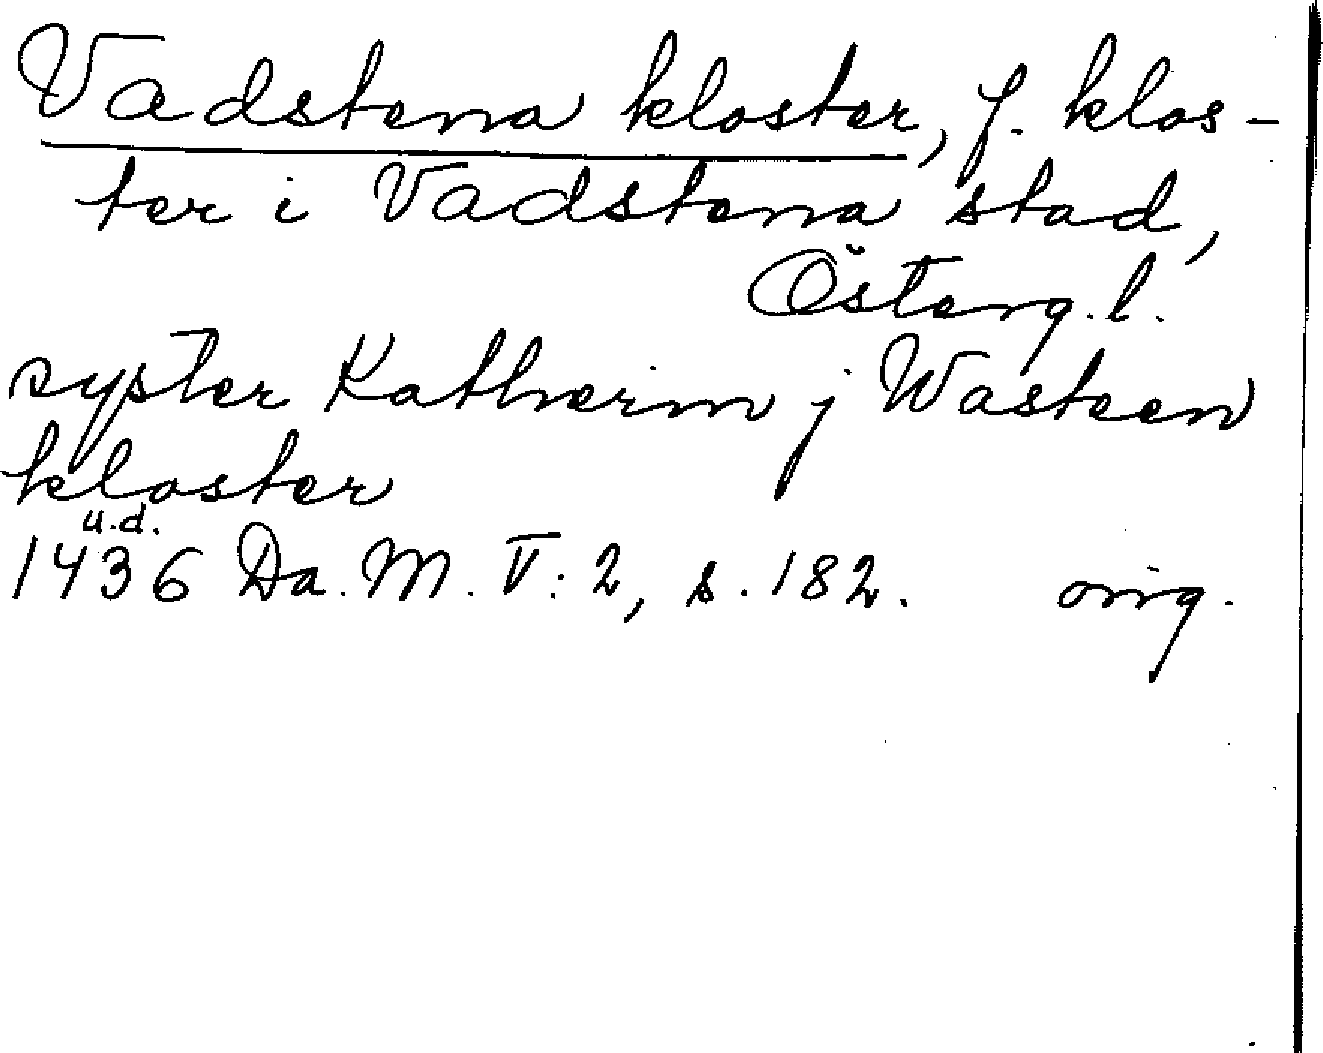 Vadstena kloster, f. klos-
ter i Vadstena stad,
Österg.l.
syster Katherin j Wasteen
kloster
u.d.
1436 Da. M. V: 2, s. 182. orig.